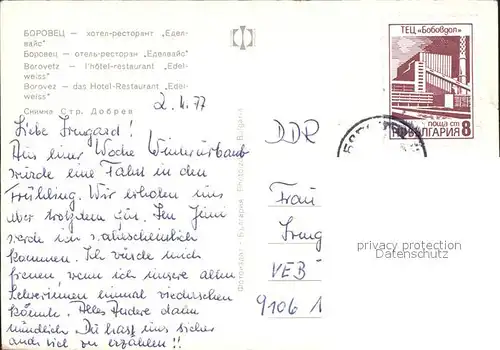 БОРОВЕЦ — хотел-ресторант „Едел-
вайс"
Боровец — отель-ресторан „Еделвайс"
Borovetz — l'hôtel-restaurant „Edel-
weiss"
Borovez — das Hotel-Restaurant „Edel-
weiss"
Снимка Стр. Добрев
2.4.77
Liebe Irmgard!
Aus einer Woche Winterurlaub
wurde eine Fahrt in den
Frühling. Wir erholen uns
aber trotzdem gut. Im Juni
werde ich wahrscheinlich
kommen. Ich würde mich
freuen, wenn ich unsere alten
Lehrerinnen einmal wiedersehen
könnte. Alles Andere dann
mündlich. Du hast uns sicher
auch viel zu erzählen!!
Фотоиздат - България
ТЕЦ „Бобовдол"
поща ст
НР БЪЛГАРИЯ 8
DDR
Frau
Irmg
VEB
9106
privacy protection
Datenschutz